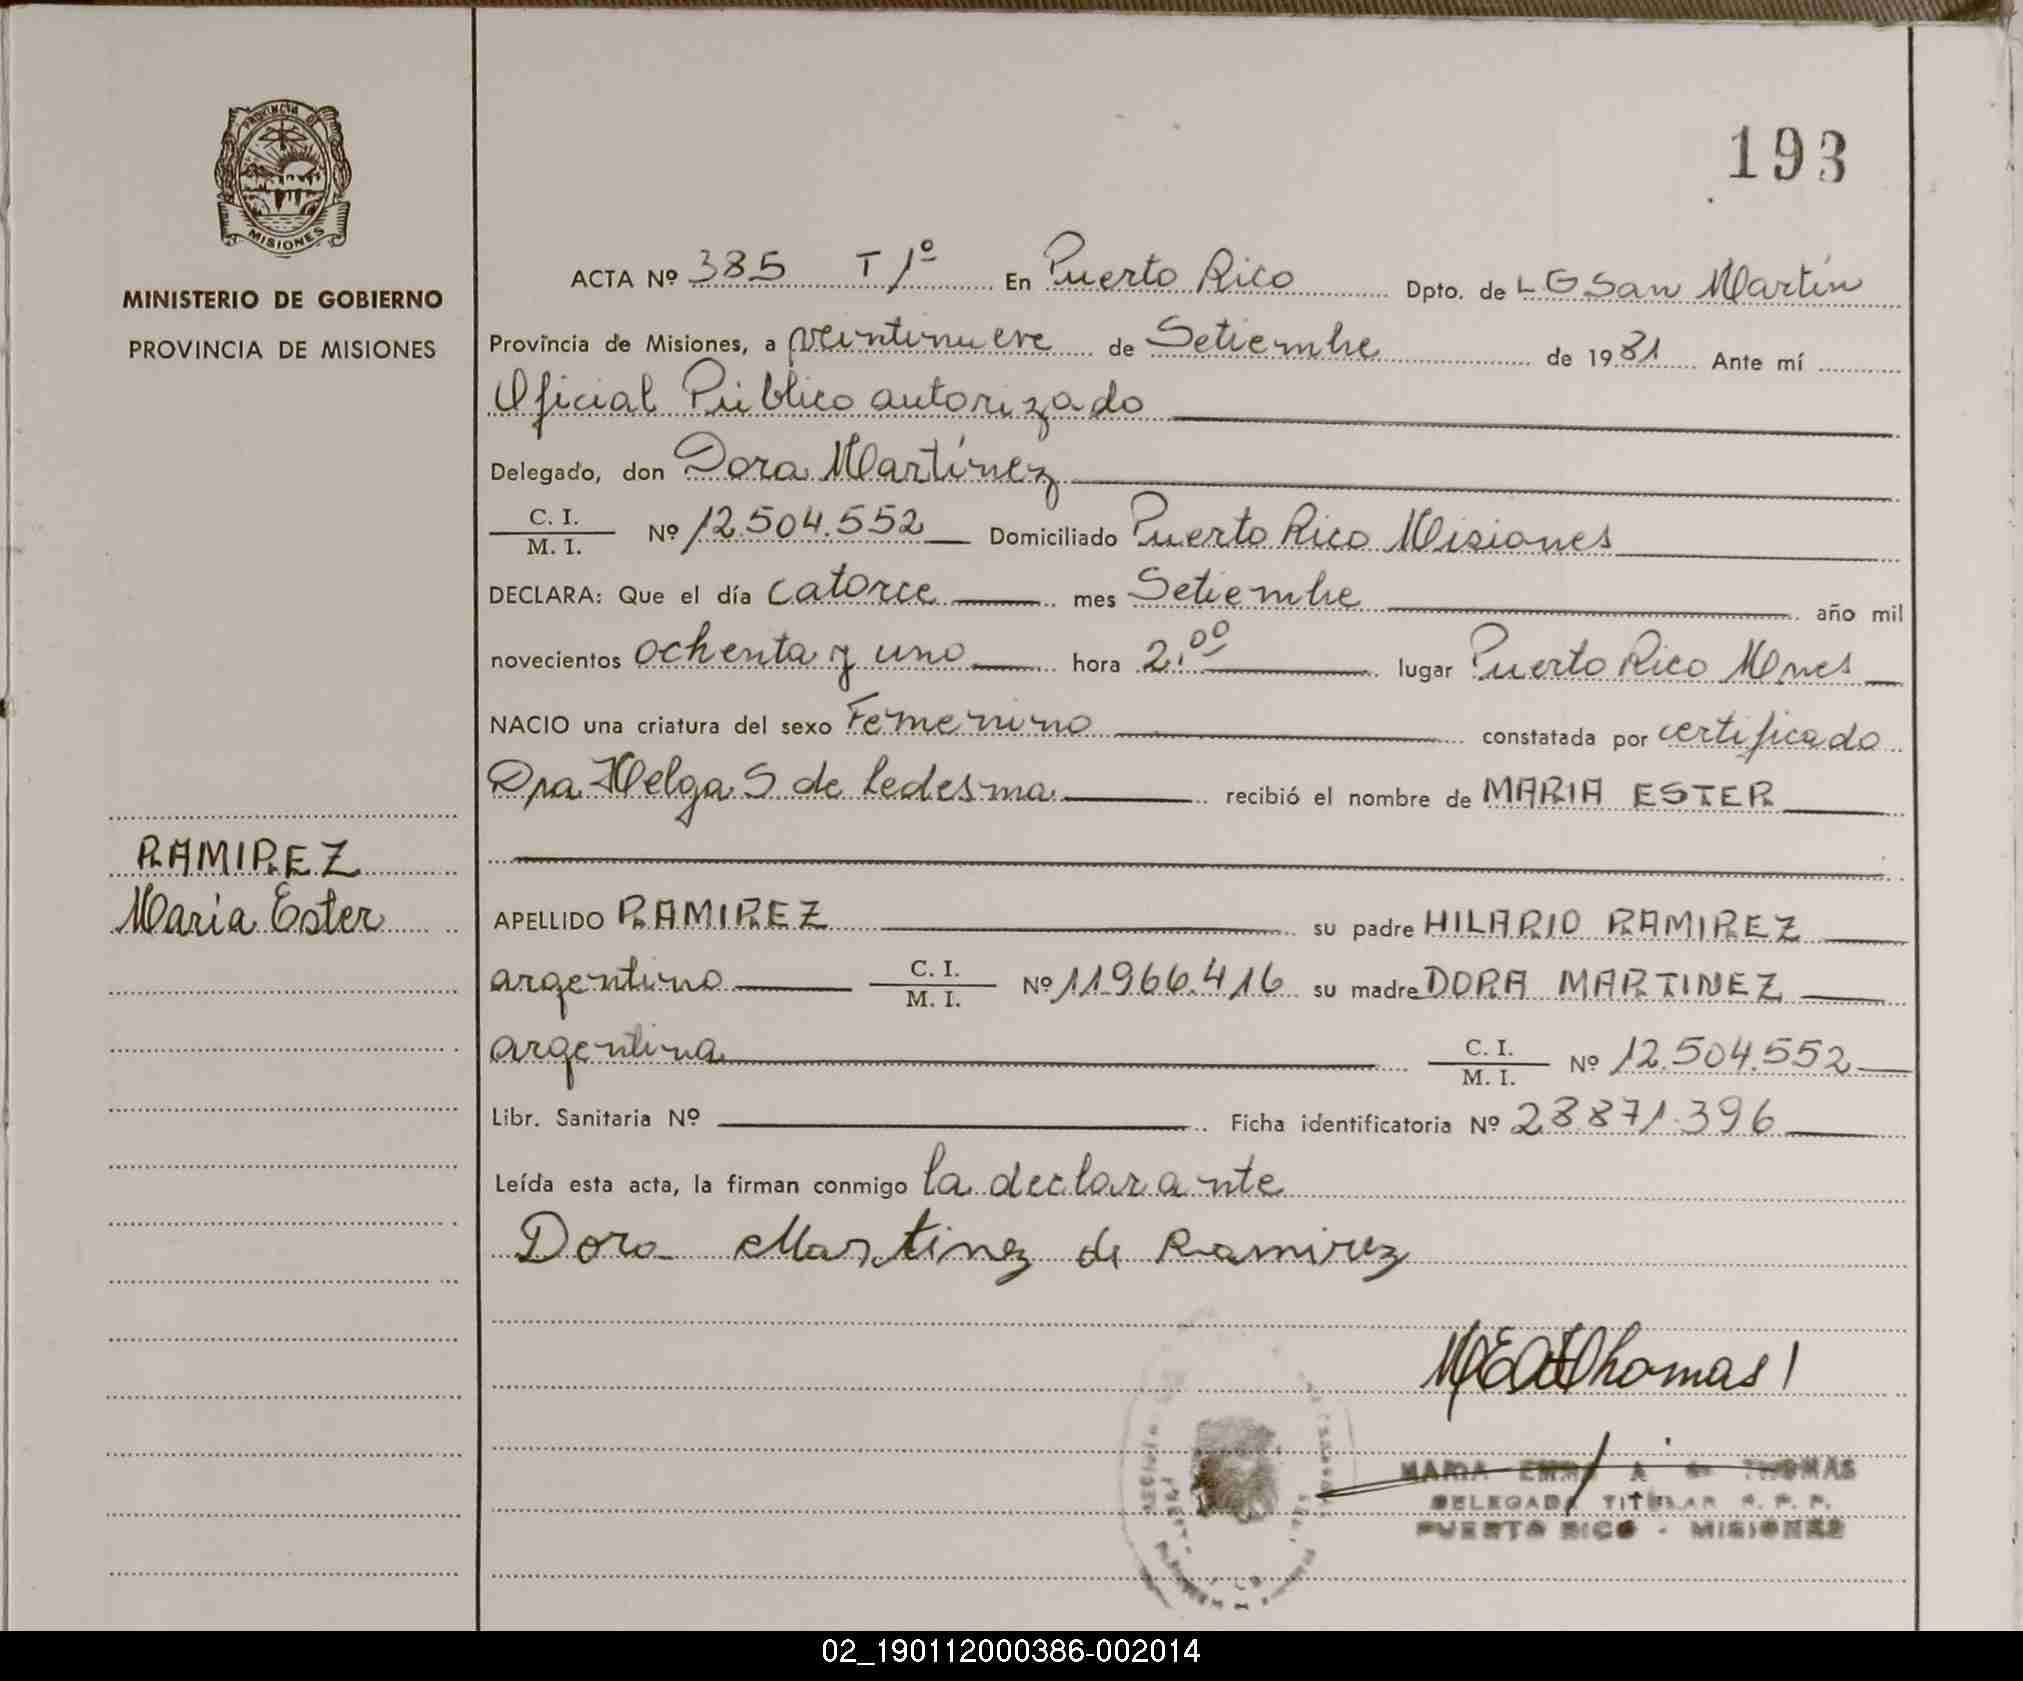 PROVINCIA DE
MISIONES
MINISTERIO DE GOBIERNO
PROVINCIA DE MISIONES
RAMIREZ
Maria Ester
193
ACTA Nº 385 T 1º En Puerto Rico Dpto. de L G San Martín
Provincia de Misiones, a veintinueve de Setiembre de 1981 Ante mí
Oficial Público autorizado
Delegado, don Dora Martínez
C. I.
M. I. Nº 12.504.552 Domiciliado Puerto Rico Misiones
DECLARA: Que el día catorce mes Setiembre año mil
novecientos ochenta y uno hora 2.00 lugar Puerto Rico Mnes
NACIO una criatura del sexo Femenino constatada por certificado
Dra Helga S de Ledesma recibió el nombre de MARIA ESTER
APELLIDO RAMIREZ su padre HILARIO RAMIREZ
argentino C. I. M. I. Nº 11966.416 su madre DORA MARTINEZ
argentina C. I. M. I. Nº 12.504.552
Libr. Sanitaria Nº Ficha identificatoria Nº 28871.396
Leída esta acta, la firman conmigo la declarante
Dora Martinez de Ramirez
Thomas
MARIA EMMA A de THOMAS
DELEGADA TITULAR R. P. P.
PUERTO RICO - MISIONES
02_190112000386-002014